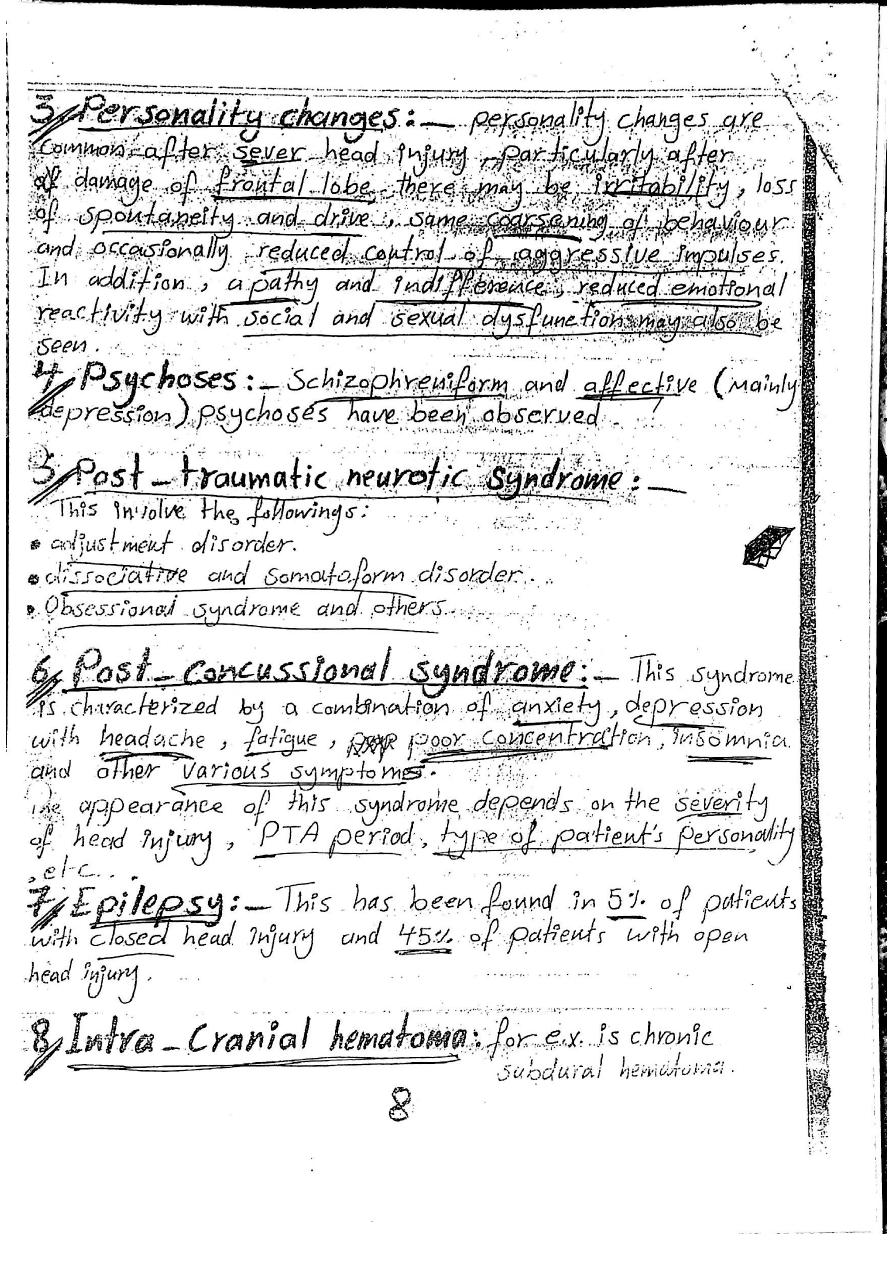 3/ Personality changes:- personality changes are
common after sever head injury, particularly after
damage of frontal lobe, there may be irritability, loss
of spontaneity and drive, same coarsening of behaviour
and occasionally reduced control of aggressive impulses.
In addition, apathy and indifference, reduced emotional
reactivity with social and sexual dysfunction may also be
seen.
4/ Psychoses:- Schizophreniform and affective (mainly
depression) psychoses have been observed.
5/ Post-traumatic neurotic syndrome:-
This involve the followings:
• adjustment disorder.
• dissociative and somatoform disorder.
• Obsessional syndrome and others.
6/ Post-concussional syndrome:- This syndrome
is characterized by a combination of anxiety, depression
with headache, fatigue, poor concentration, insomnia
and other various symptoms.
The appearance of this syndrome depends on the severity
of head injury, PTA period, type of patient's personality
, etc...
7/ Epilepsy:- This has been found in 5% of patients
with closed head injury and 45% of patients with open
head injury.
8/ Intra-Cranial hematoma: for ex. is chronic
subdural hematoma.
8